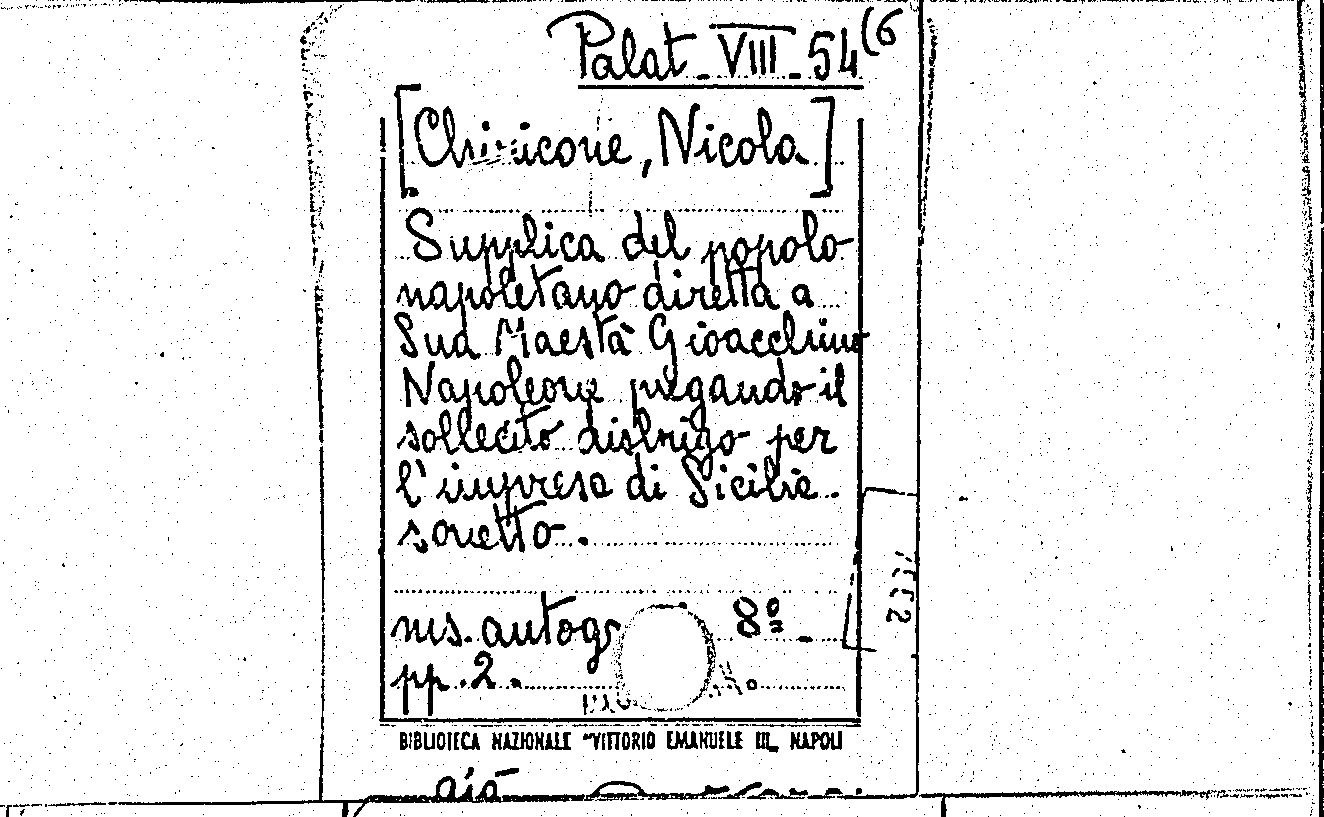 Palat - VIII - 54 (6
[Chiricone, Nicola]
Supplica del popolo
napoletano diretta a
Sua Maestà Gioacchino
Napoleone pregando il
sollecito disbrigo per
l'impresa di Sicilia.
sonetto.
ms. autogr 8º -
pp. 2.
BIBLIOTECA NAZIONALE "VITTORIO EMANUELE III„ NAPOLI
già